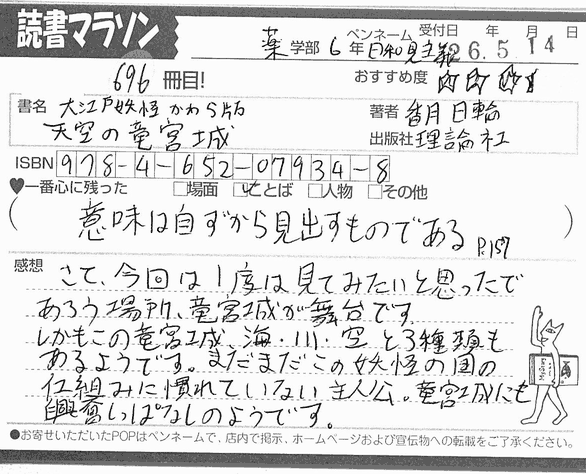 読書マラソン
薬 学部 6 年 ペンネーム 日和見主義 受付日 26.5年 月14日
696 冊目! おすすめ度
書名 大江戸妖怪かわら版 著者 香月日輪
天空の竜宮城 出版社 理論社
ISBN 978-4-652-07934-8
♥一番心に残った □場面 ☑ことば □人物 □その他
(意味は自ずから見出すものである P.157)
感想 さて、今回は1度は見てみたいと思ったで
あろう場所、竜宮城が舞台です
しかもこの竜宮城、海・川・空と3種類も
あるようです。まだまだこの妖怪の国の
仕組みに慣れていない主人公。竜宮城にも
興奮しっぱなしのようです。
●お寄せいただいたPOPはペンネームで、店内で掲示、ホームページおよび宣伝物への転載をご了承ください。